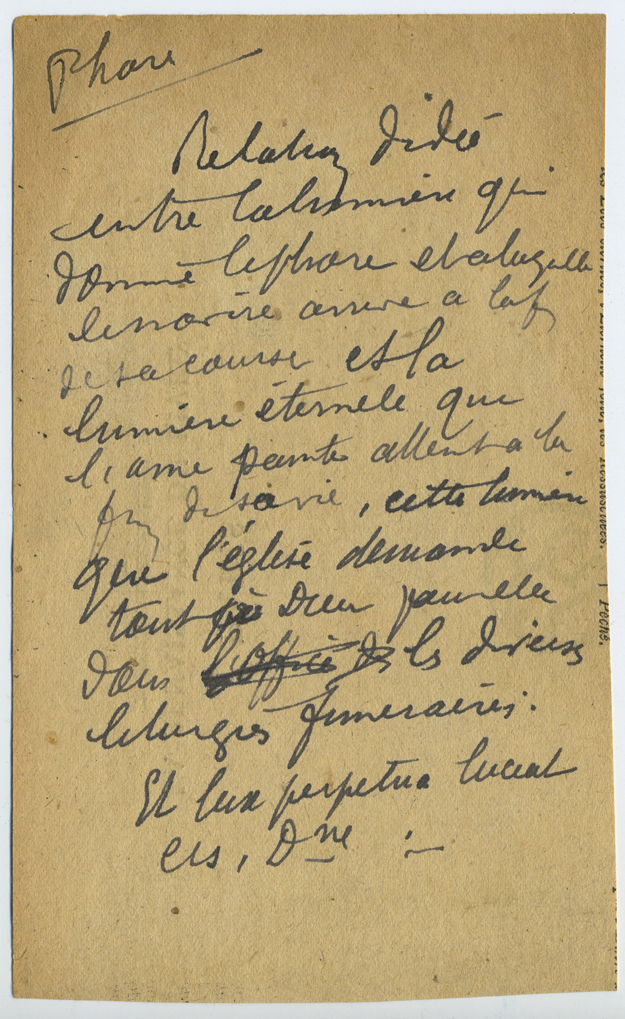 Phare
Relation d'idée
entre la lumière qui
donne le phare et à laquelle
le navire arrive a la f
de sa course et la
lumière éternele que
l'ame parvte attent a la
fin de sa vie, cette lumière
que l'église demande
tout à Dieu pour elle
dans l'office des les diverses
liturgies funeraires.
Et lux perpetua luceat
eis, Dne :—